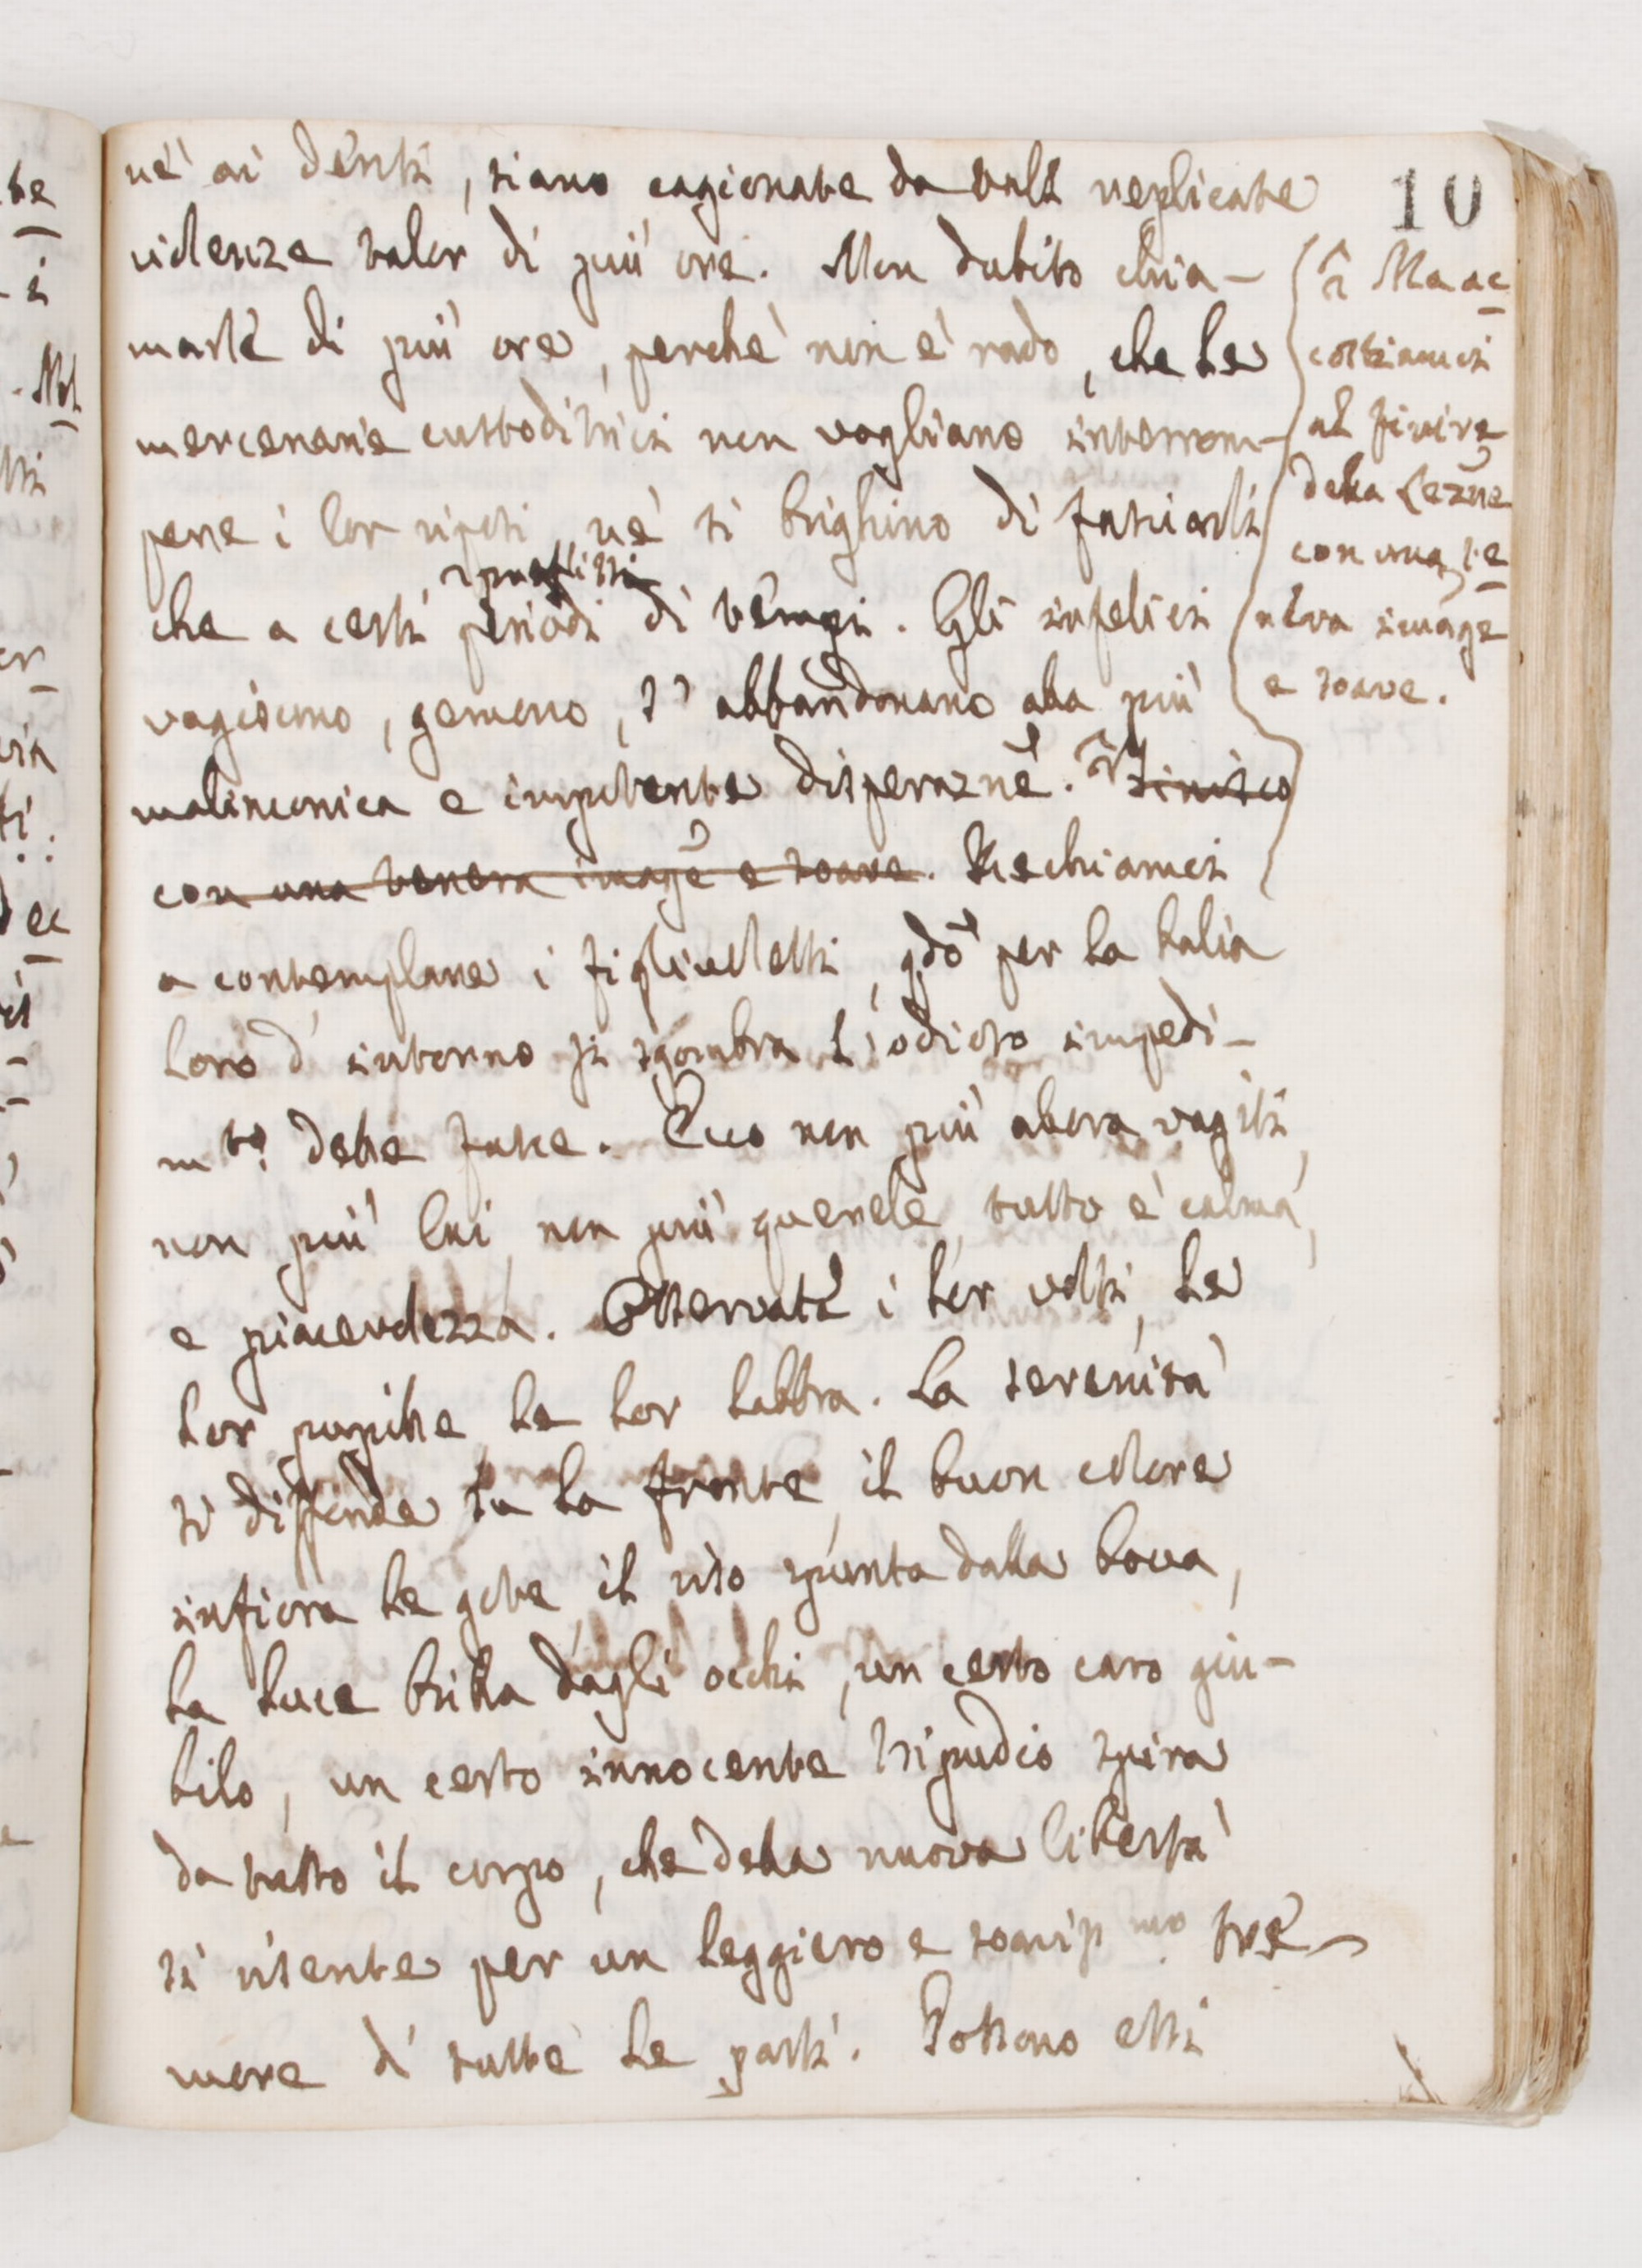 10
nè ai denti, siano cagionate da tali replicate
violenze talor di più ore. Non dubito chia-
marle di più ore, perchè non è rado, che le
mercenarie custoditrici non vogliano interrom-
pere i lor riposi, nè si brighino di fasciarli
prefissi
che a certi periodi di tempi. Gli infelici
vagiscono, gemono, s'abbandonano alla più
malinconica e impotente disperazne. Finisco
con una tenera image e soave. Rechiamci
a contemplare i figliuoletti, qdo per la balia
loro d'intorno si sgombra l'odioso impedi-
mto delle fasce. Ecco non più allora vagiti,
non più lai, non più querele, tutto è calma,
e piacevolezza. Osservate i lor volti, le
lor pupille, le lor labbra. La serenità
si diffonde su la fronte, il buon colore
infiora le gote, il riso spunta dalla bocca,
la luce brilla dagli occhi, un certo caro giu-
bilo, un certo innocente tripudio spira
da tutto il corpo, che della nuova libertà
si risente per un leggiero e soavissmo tre-
more di tutte le parti. Possono essi
Ma ac
costiamci
al finire
della Lezne
con una te
nera image
e soave.